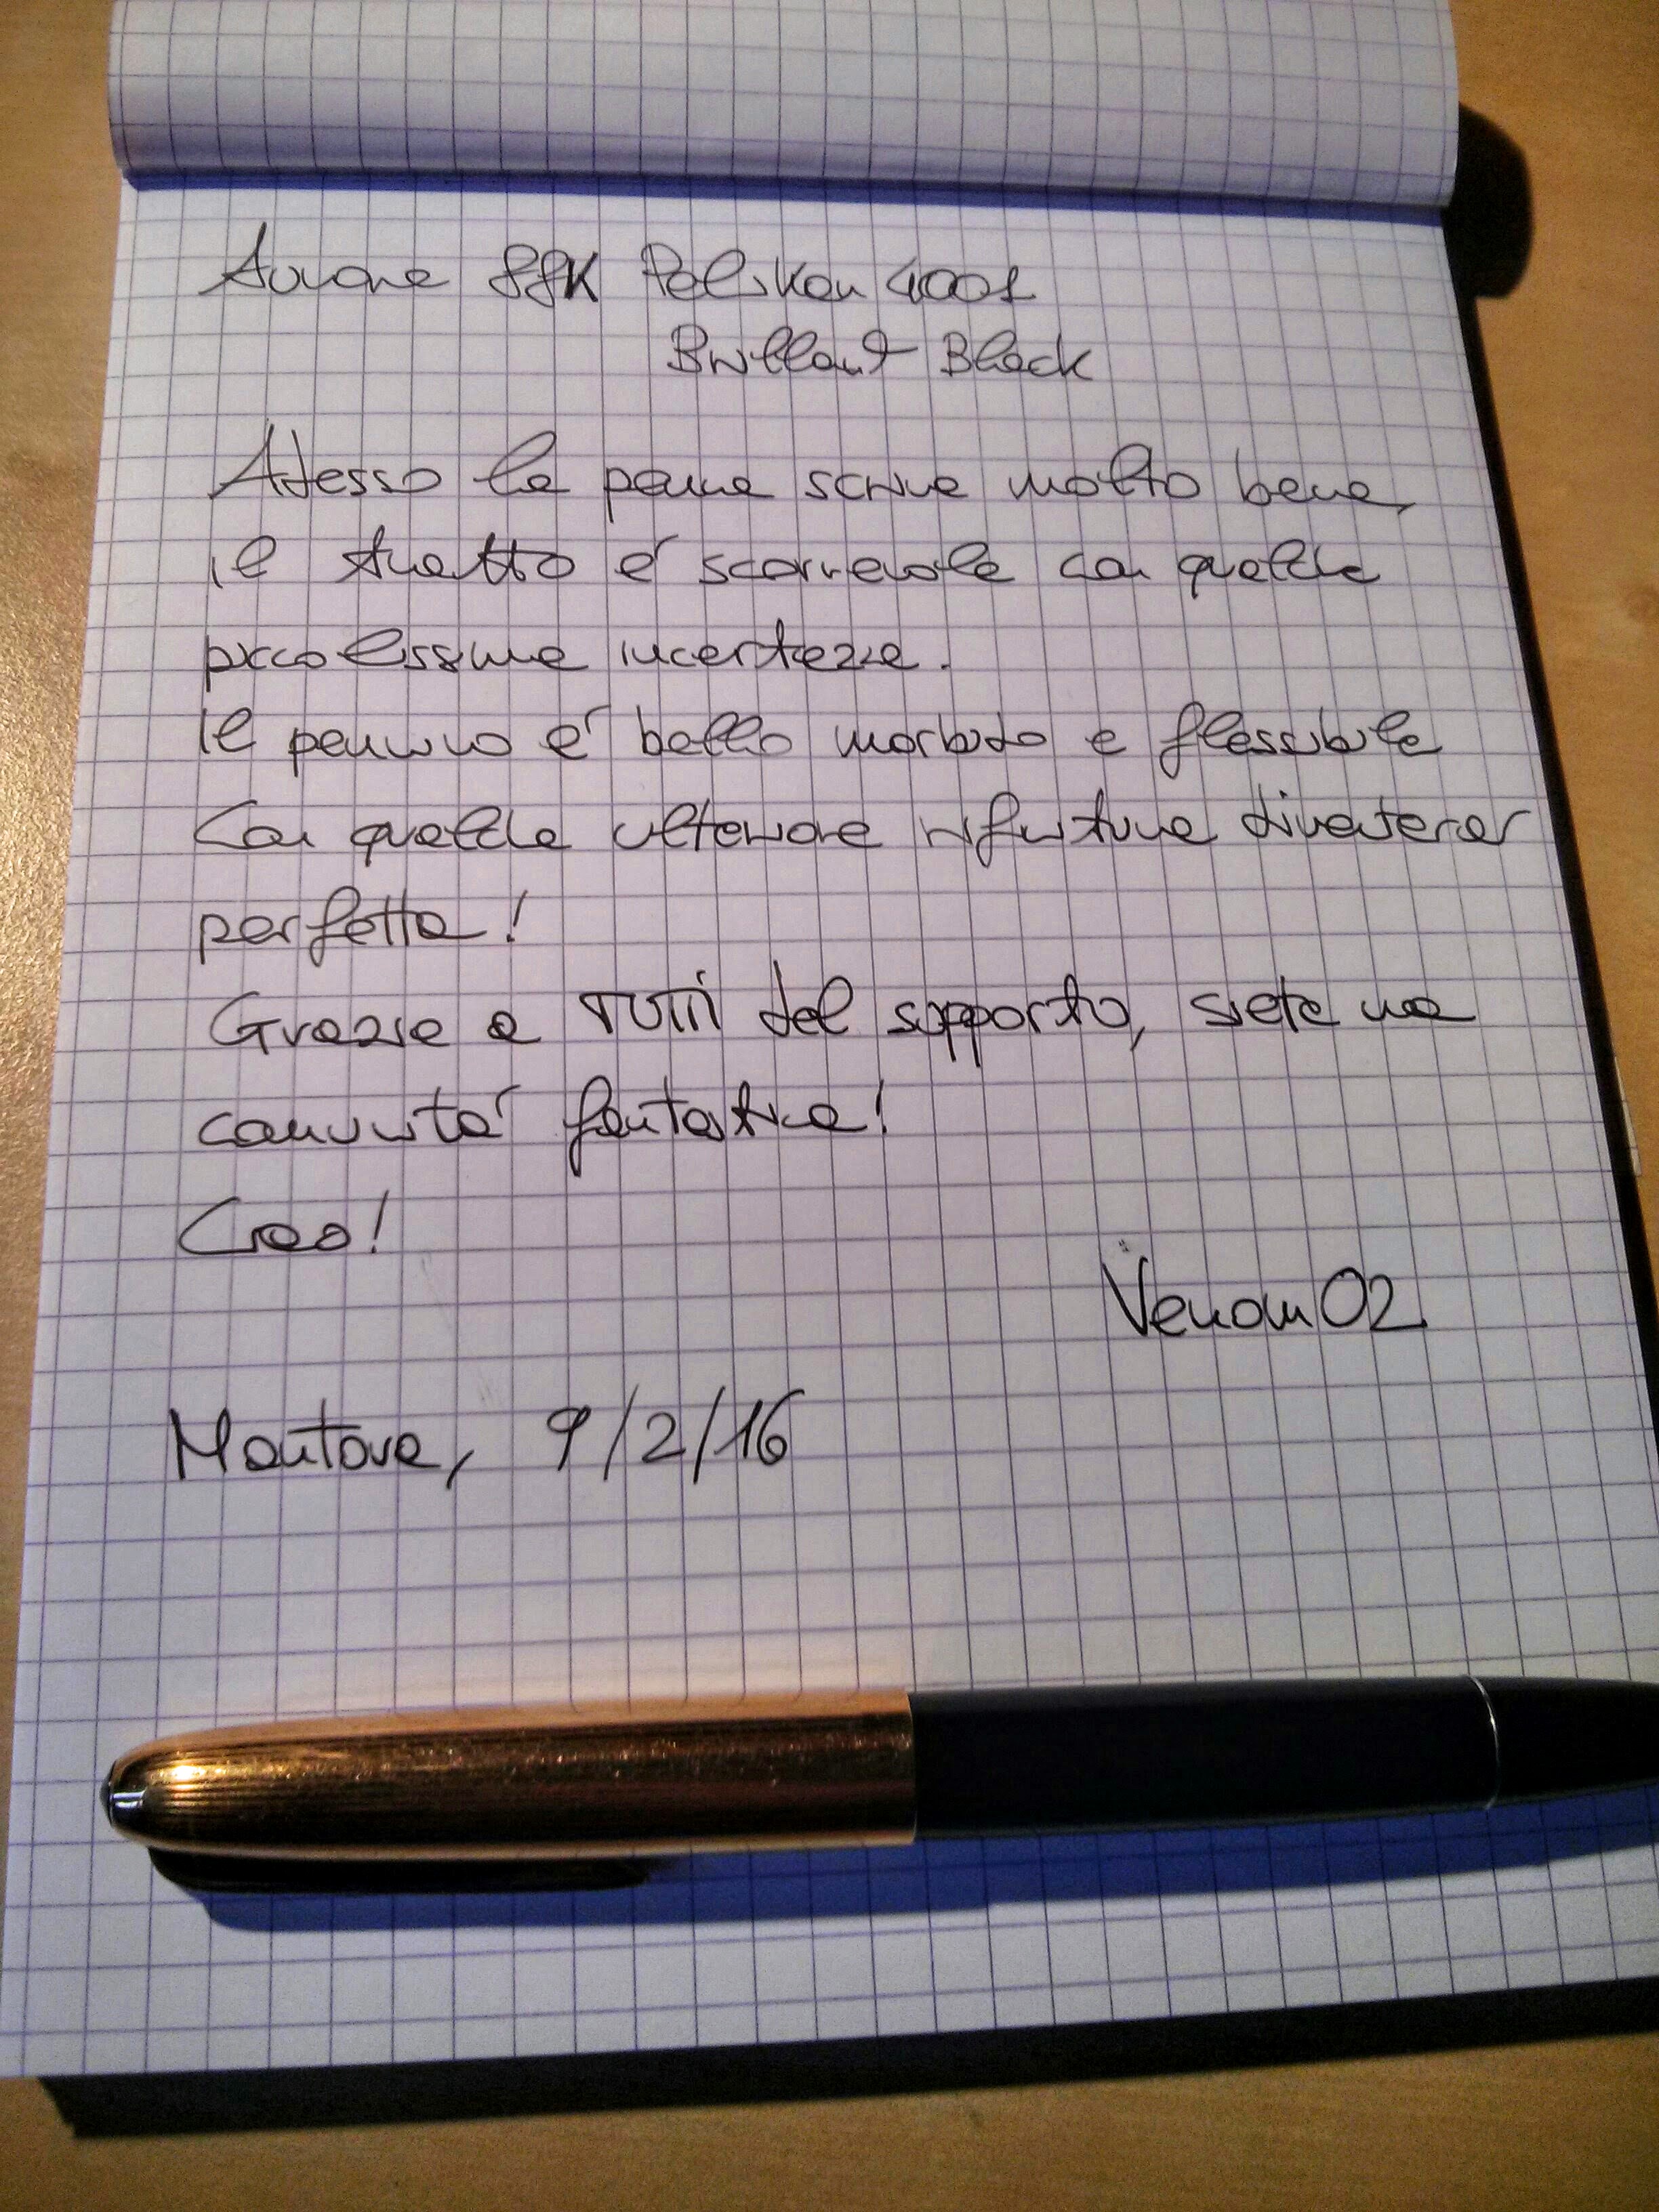 Aurora 88K Pelikan 4001
Brillant Black
Adesso la penna scrive molto bene,
il tratto é scorrevole con qualche
piccolissima incertezza.
Il pennino é bello morbido e flessibile
Con qualche ulteriore rifinitura diventerá
perfetta!
Grazie a TUTTi del supporto, siete una
comunitá fantastica!
Ciao!
Venom02
Mantova, 9/2/16